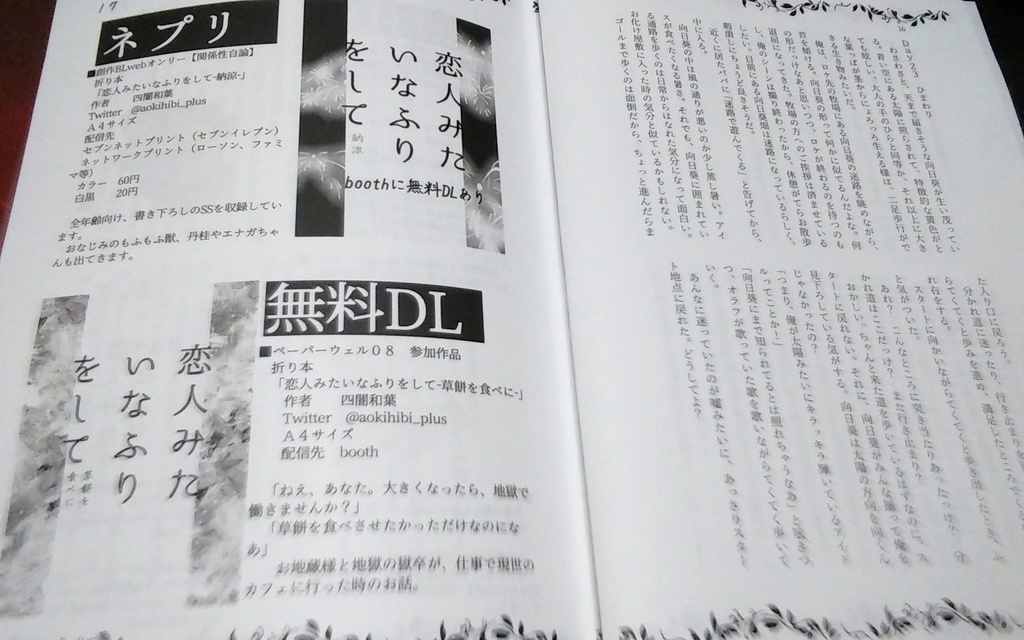 17
ネプリ
■創作BLwebオンリー【関係性自論】
折り本
「恋人みたいなふりをして-納涼-」
作者　四闇和葉
Twitter　@aokihibi_plus
A4サイズ
配信先
セブンネットプリント（セブンイレブン）
ネットワークプリント（ローソン、ファミ
マ等）
カラー　60円
白黒　20円
全年齢向け、書き下ろしのSSを収録してい
ます。
おなじみのもふもふ獣、丹桂やエナガちゃ
んも出てきます。
恋人みた
いなふり
をして
納涼
boothに無料DLあり
恋人みた
いなふり
をして
草餅を
食べに
無料DL
■ペーパーウェル08　参加作品
折り本
「恋人みたいなふりをして-草餅を食べに-」
作者　四闇和葉
Twitter　@aokihibi_plus
A4サイズ
配信先　booth
「ねえ、あなた。大きくなったら、地獄で
働きませんか？」
「草餅を食べさせたかっただけなのにな
あ」
お地蔵様と地獄の獄卒が、仕事で現世の
カフェに行った時のお話。
16
Day23　ひまわり
わさわさと、天まで届きそうな向日葵が生い茂ってい
る。青い空にある太陽に照らされて、特徴的な黄色がと
ても眩しい。大人の手のひらと同等か、それ以上に大き
な葉っぱが茎からにょろっと生える様は、二足歩行がで
きる生き物みたいだ。
俺は、ロケ先の牧場にある向日葵の迷路を眺めながら、
首を傾げる。向日葵の形って何かに似てるんだよな。何
の形だっけなあと思いつつ、ロケが終わるのを待つのも
退屈になってきた。牧場の方へのご挨拶は済ませている
し、俺のシーンは撮り終わったから、休憩がてらお散歩
したい。目前にある向日葵畑は迷路になっているらしく、
暇潰しにちょうど良さそうだ。
近くに居たパパに「迷路で遊んでくる」と告げてから、
中に入る。
向日葵の中は風の通りが悪いのか少し蒸し暑い。アイ
スが食べたくなる暑さ。それでも、向日葵に囲まれてい
る通路を歩くのは日常からはなれた気分になって面白い。
お化け屋敷に入った時の気分と似ているかもしれない。
ゴールまで歩くのは面倒だから、ちょっと進んだらま
た入り口に戻ろう。
分かれ道に迷ったり、行き止まりを
らてくてくと歩みを進め、満足したところで
れ行をする。
スタートに向かいながらてくてくと歩き出したとき、ふ
と気がついた。
あれ？　こんなところに突き当たりあったっけ？　分
かれ道はどこだっけ？　また行き止まり？
おかしい。ちゃんと来た道を歩いているはずなのに、ス
タートに戻れない。それに、向日葵がみんな揃って俺を
見下ろしている気がする。向日葵は太陽の方向を向くん
じゃなかったの？
「つまり、俺が太陽みたいにキラッキラ輝いているアイド
ルってことかー」
「向日葵にまで知られてるとは照れちゃうなあ」と呟きつ
つ、オラフが歌っていた歌を歌いながらてくてく歩いて
いく。
あんなに迷っていたのが嘘みたいに、あっさりスター
ト地点に戻れた。どうしてよ？